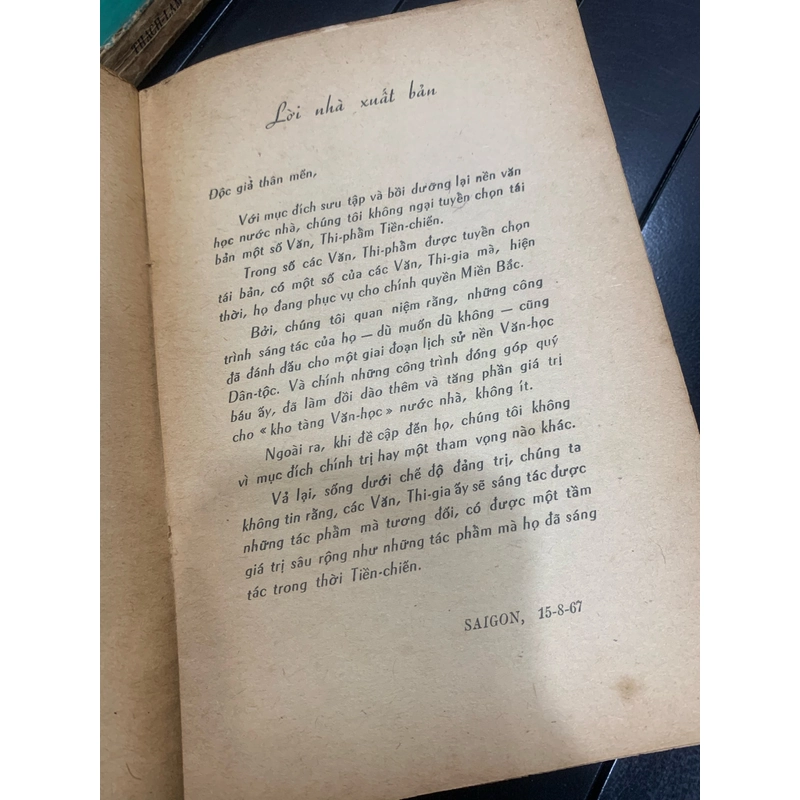 THẠCH-LAM
Lời nhà xuất bản
Độc giả thân mến,
Với mục đích sưu tập và bồi dưỡng lại nền văn
học nước nhà, chúng tôi không ngại tuyển chọn tái
bản một số Văn, Thi-phẩm Tiền-chiến.
Trong số các Văn, Thi-phẩm được tuyển chọn
tái bản, có một số của các Văn, Thi-gia mà, hiện
thời, họ đang phục vụ cho chính quyền Miền Bắc.
Bởi, chúng tôi quan niệm rằng, những công
trình sáng tác của họ — dù muốn dù không — cũng
đã đánh dấu cho một giai đoạn lịch sử nền Văn-học
Dân-tộc. Và chính những công trình đóng góp quý
báu ấy, đã làm dồi dào thêm và tăng phần giá trị
cho « kho tàng Văn-học » nước nhà, không ít.
Ngoài ra, khi đề cập đến họ, chúng tôi không
vì mục đích chính trị hay một tham vọng nào khác.
Vả lại, sống dưới chế độ đảng trị, chúng ta
không tin rằng, các Văn, Thi-gia ấy sẽ sáng tác được
những tác phẩm mà tương đối, có được một tầm
giá trị sâu rộng như những tác phẩm mà họ đã sáng
tác trong thời Tiền-chiến.
SAIGON, 15-8-67